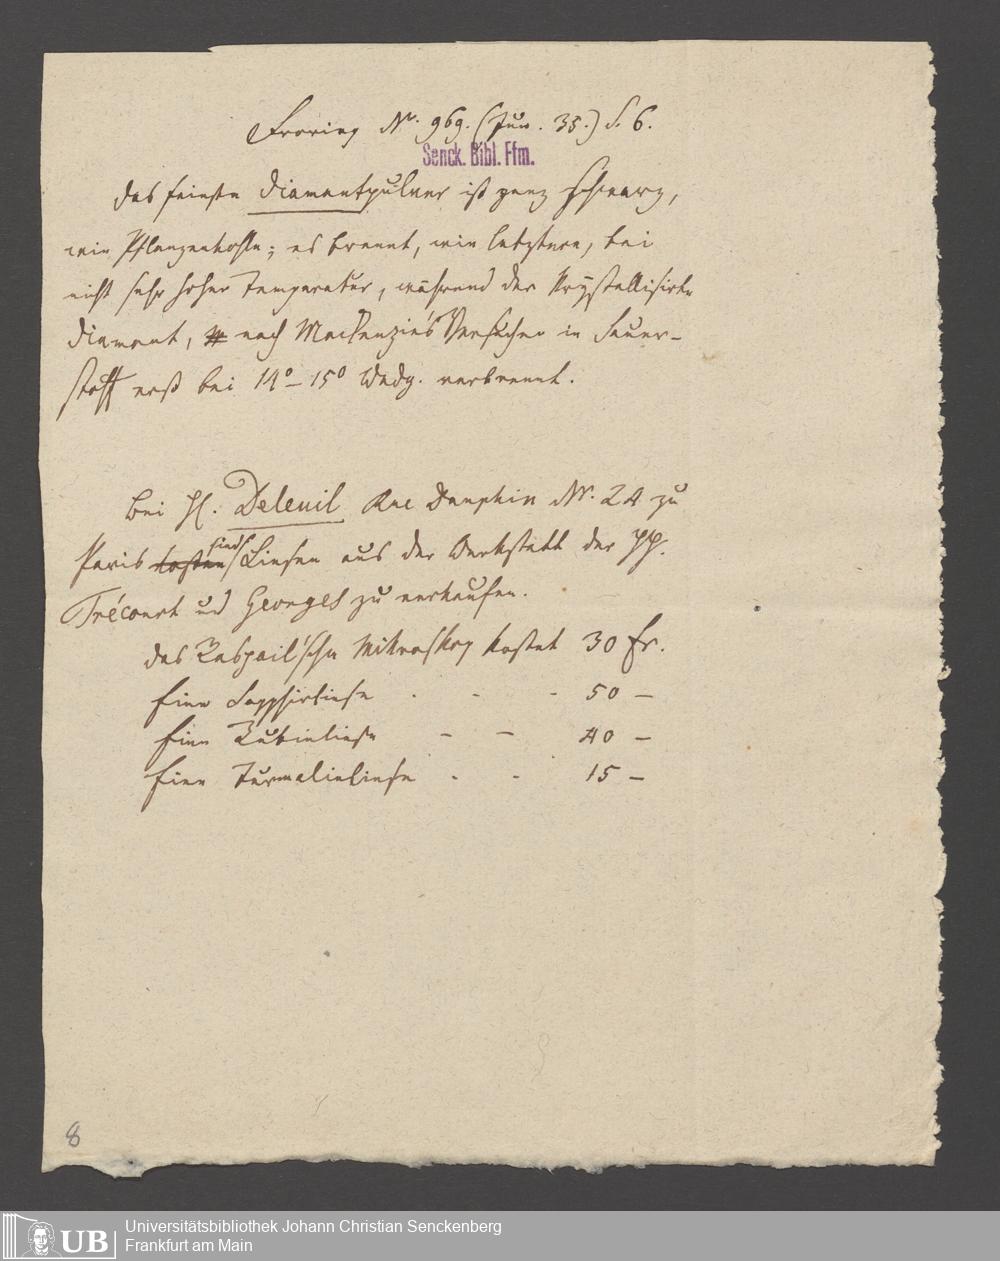 Froriep Nr. 969. (Jun. 35.) S. 6.
Senck. Bibl. Ffm.
Das feinste Diamantpulver ist ganz schwarz,
wie Pflanzenkohle; es brennt, wie letztere, bei
nicht sehr hoher Temperatur, während der krystallisirte
Diamant, nach Mackenzie's Versuchen in Sauer-
stoff erst bei 14°–15° Wedg. verbrennt.
Bei H. Deleuil Rue Dauphin Nr. 24 zu
Paris kosten sind Linsen aus der Werkstatt der HH.
Trécourt und Georges zu verkaufen.
Das Raspail'sche Mikroskop kostet 30 Fr.
Eine Sapphirlinse - - - 50 –
Eine Rubinlinse – – 40 –
Eine Turmalinlinse - - 15 –
8
UB
Universitätsbibliothek Johann Christian Senckenberg
Frankfurt am Main